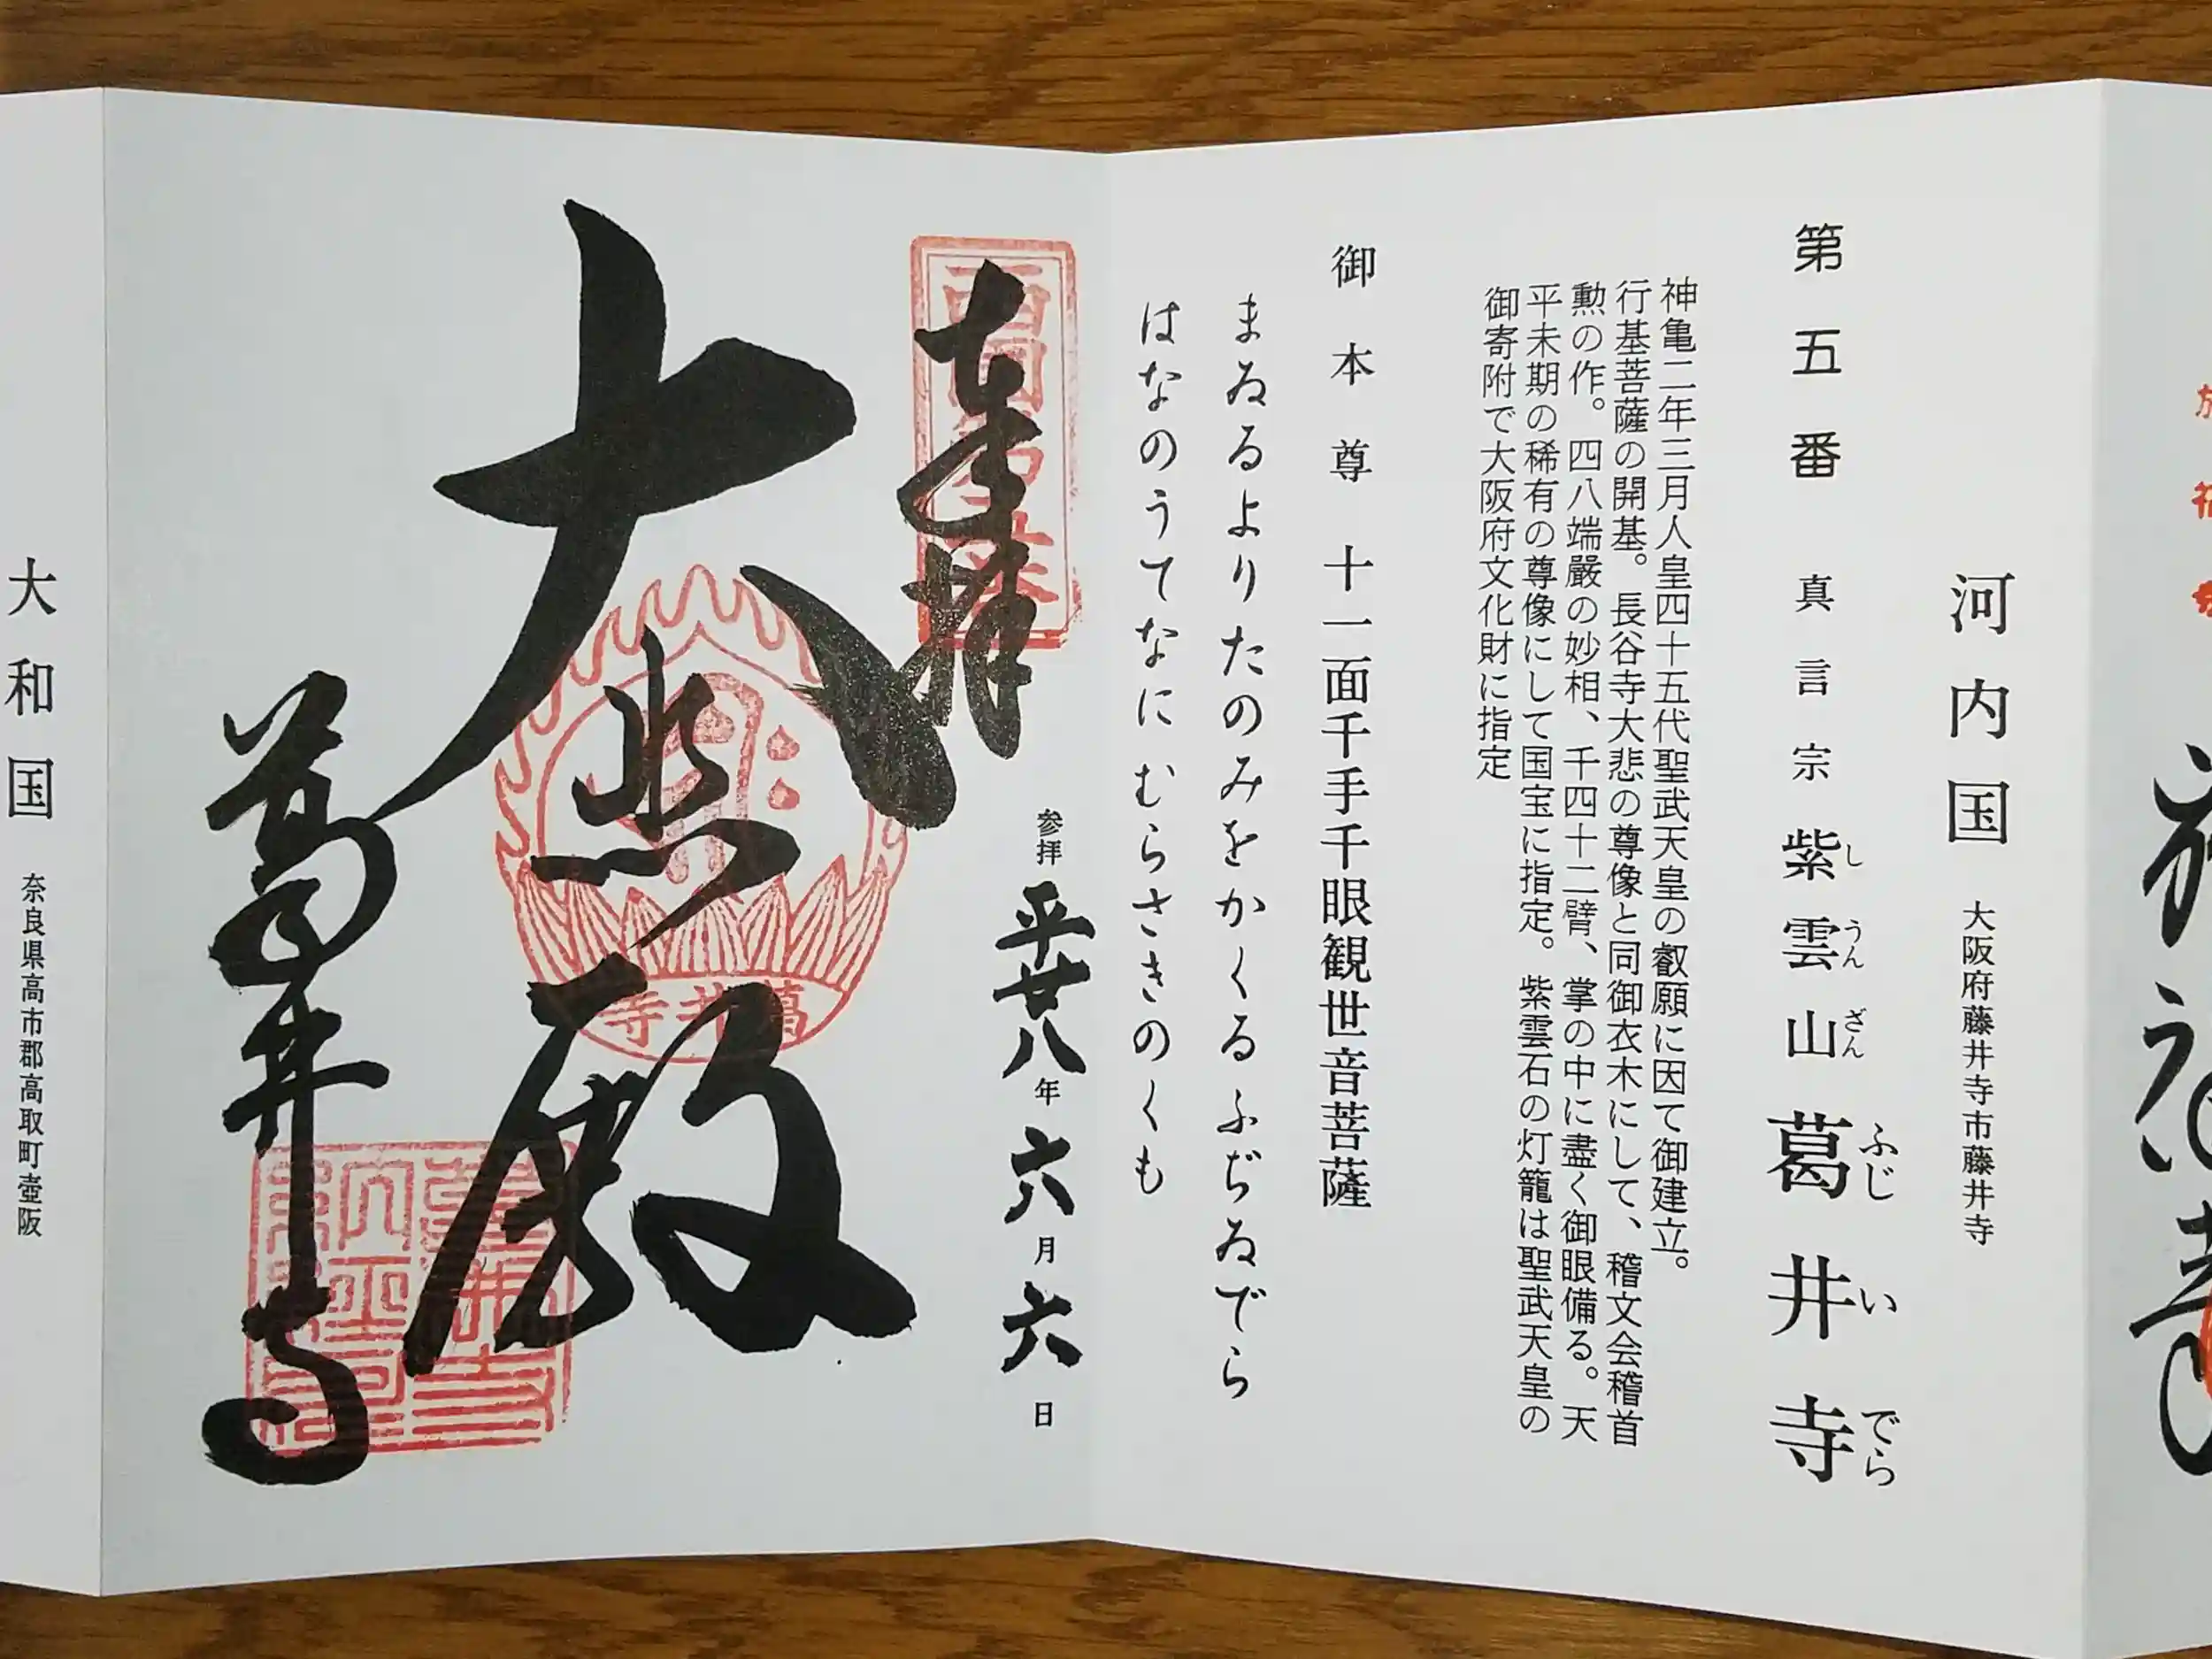 河内国 大阪府藤井寺市藤井寺
第五番 真言宗 紫雲山 葛井寺
し うん ざん ふじ い でら
神亀二年三月人皇四十五代聖武天皇の叡願に因て御建立。
行基菩薩の開基。長谷寺大悲の尊像と同御衣木にして、稽文会稽首
勲の作。四八端嚴の妙相、千四十二臂、掌の中に盡く御眼備る。天
平未期の稀有の尊像にして国宝に指定。紫雲石の灯籠は聖武天皇の
御寄附で大阪府文化財に指定
御本尊 十一面千手千眼観世音菩薩
まゐるよりたのみをかくるふぢゐでら
はなのうてなにむらさきのくも
奉拝
参拝 平廿八年六月六日
大悲殿
葛井寺
葛井寺
大和国 奈良県高市郡高取町壺阪